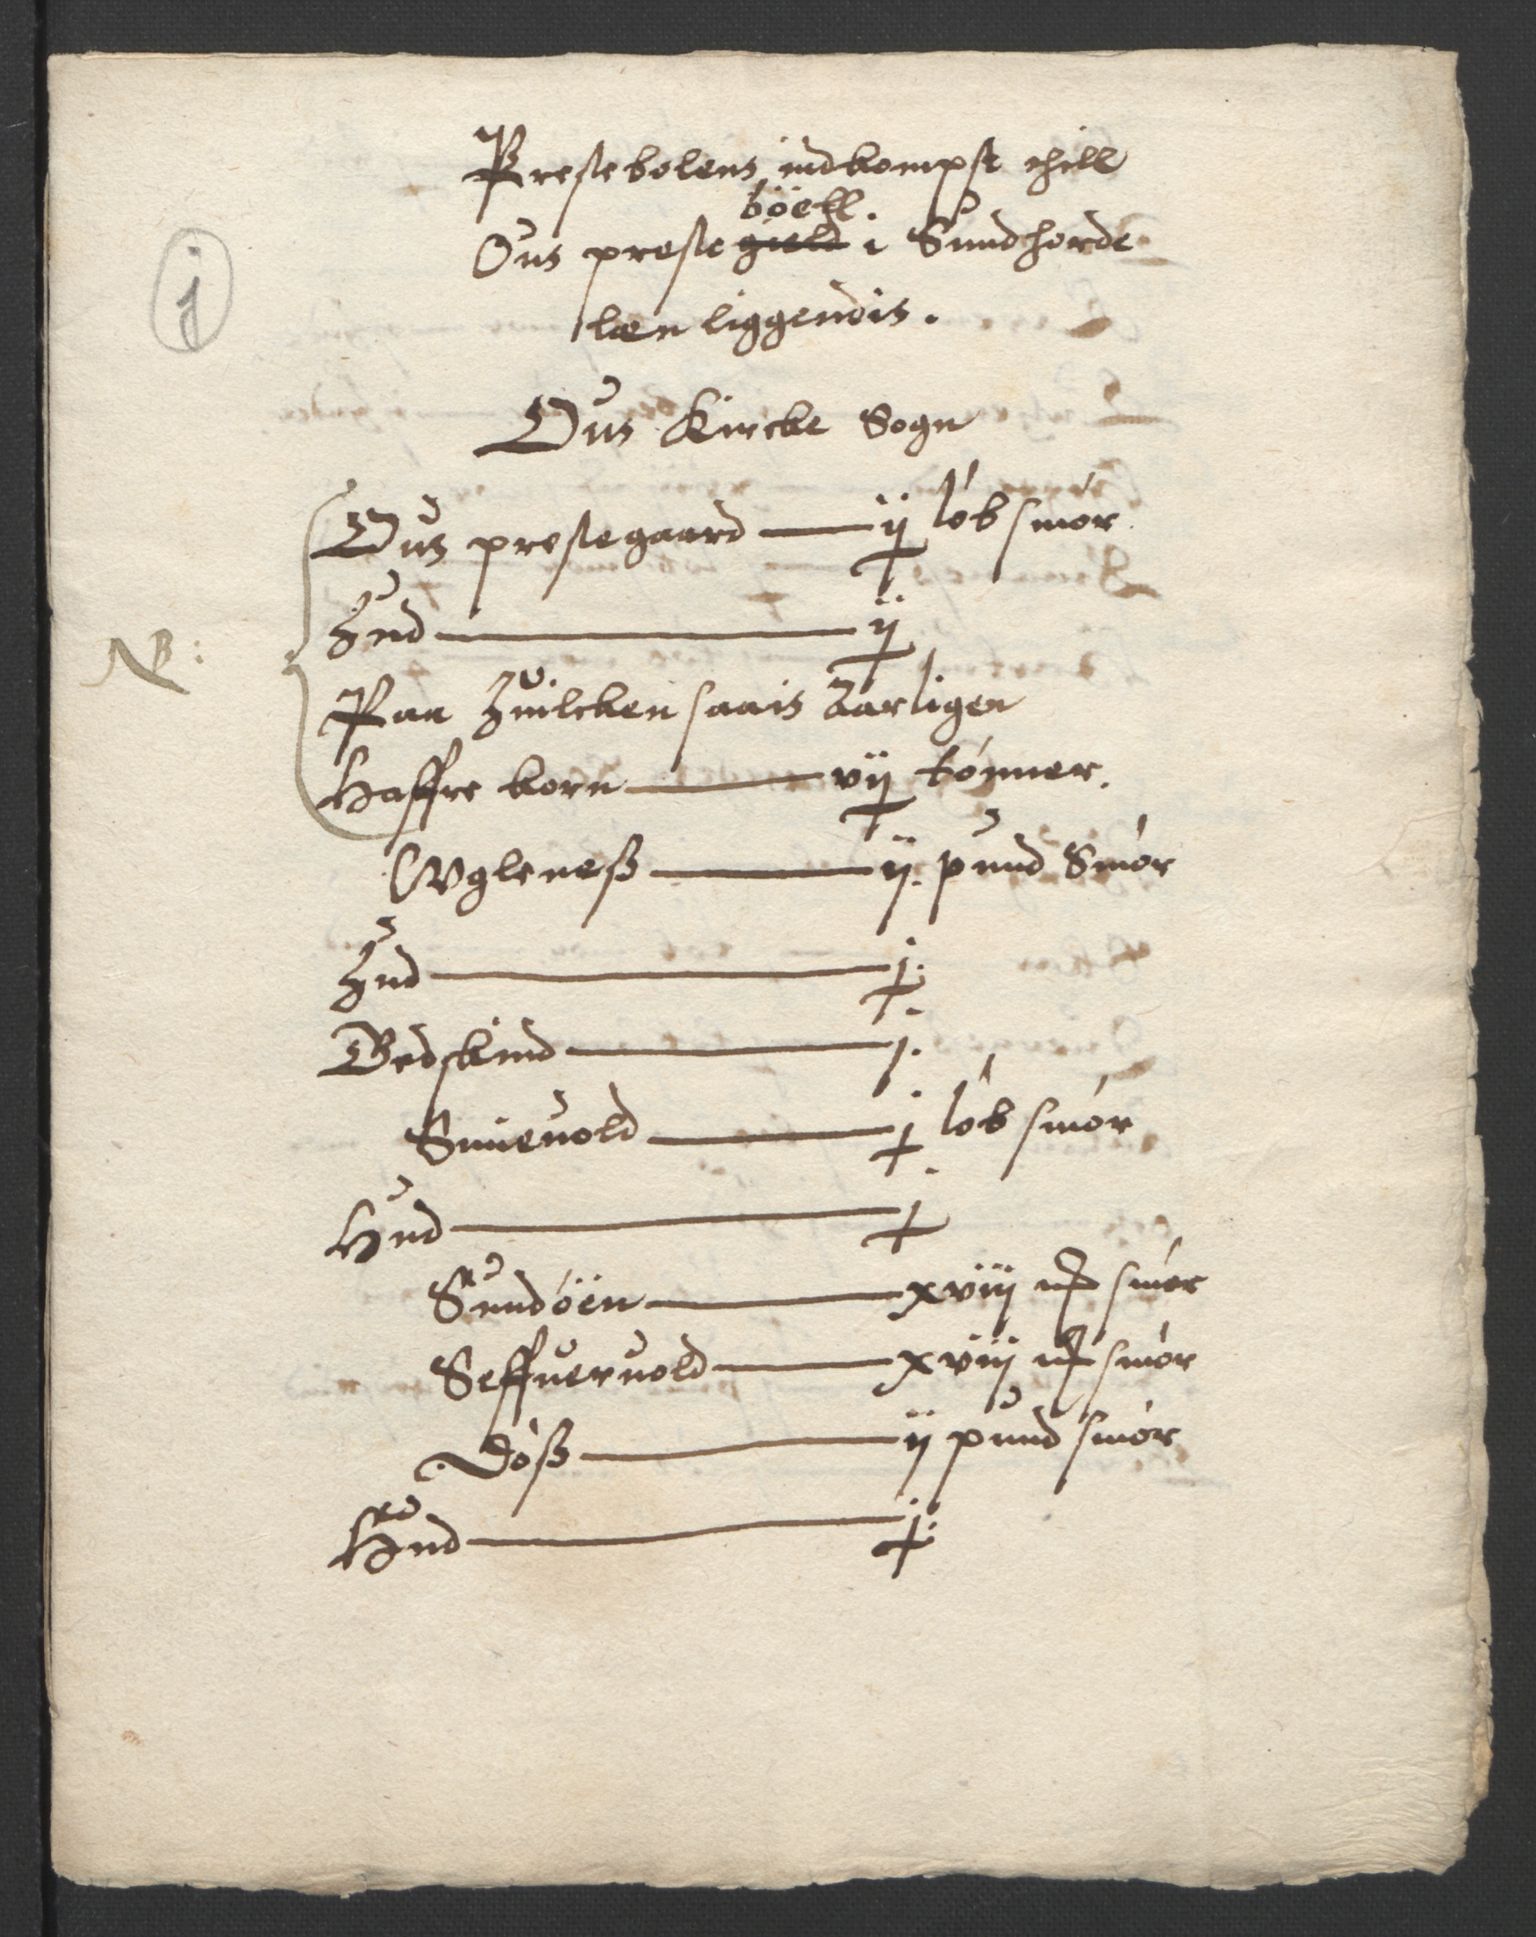 Prestebolens indkompst thill
böell.
Ous preste gield i Sundhorde
læn liggendis.
j
Ous Kircke Sogn
Ous prestegaard — ij löb smör
Hud — ij
NB:
Paa huilcken saais Aarligen
Haffre korn — vij tönner.
Wgleneß — ij. pund Smör
Hud — j.
Bedskind — j.
Snuevold — j löb smör
Hud — j
Sundöen — xviij mk smör
Seffuervold — xviij mk smör
Döß — ij pund smör
Hud — j